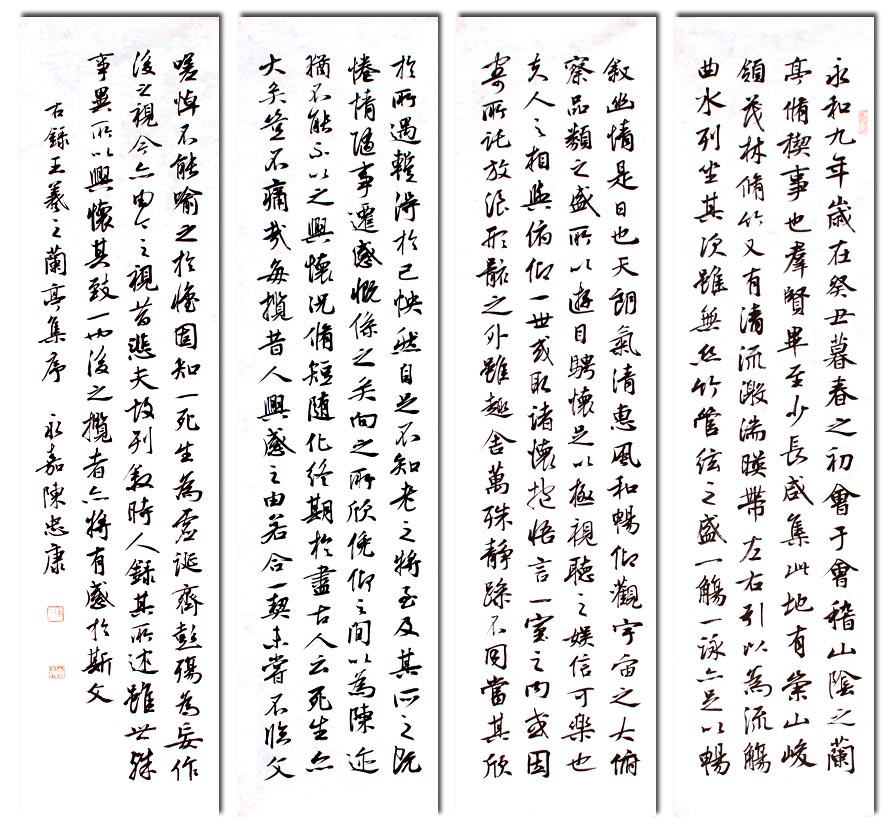 永和九年歲在癸丑暮春之初會于會稽山陰之蘭
亭脩禊事也羣賢畢至少長咸集此地有崇山峻
領茂林脩竹又有清流激湍暎帶左右引以為流觴
曲水列坐其次雖無絲竹管絃之盛一觴一詠亦足以暢
敘幽情是日也天朗氣清惠風和暢仰觀宇宙之大俯
察品類之盛所以遊目騁懷足以極視聽之娛信可樂也
夫人之相與俯仰一世或取諸懷抱悟言一室之內或因
寄所託放浪形骸之外雖趣舍萬殊靜躁不同當其欣
於所遇蹔得於己怏然自足不知老之將至及其所之既
惓情隨事遷感慨係之矣向之所欣俛仰之間以為陳迹
猶不能不以之興懷況脩短隨化終期於盡古人云死生亦
大矣豈不痛哉每攬昔人興感之由若合一契未嘗不臨文
嗟悼不能喻之於懷固知一死生為虛誕齊彭殤為妄作
後之視今亦由今之視昔悲夫故列敘時人錄其所述雖世殊
事異所以興懷其致一也後之攬者亦將有感於斯文
右錄王羲之蘭亭集序 永嘉陳忠康